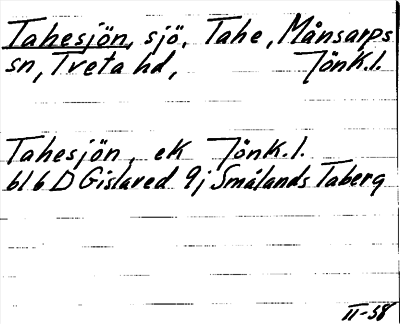 Tahesjön, sjö, Tahe, Månsarps
sn, Tveta hd, Jönk.l.
Tahesjön, ek Jönk.l.
bl 6 D Gislaved 9j Smålands Taberg
II-58